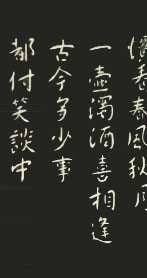 慣看春風秋月
一壺濁酒喜相逢
古今多少事
都付笑談中